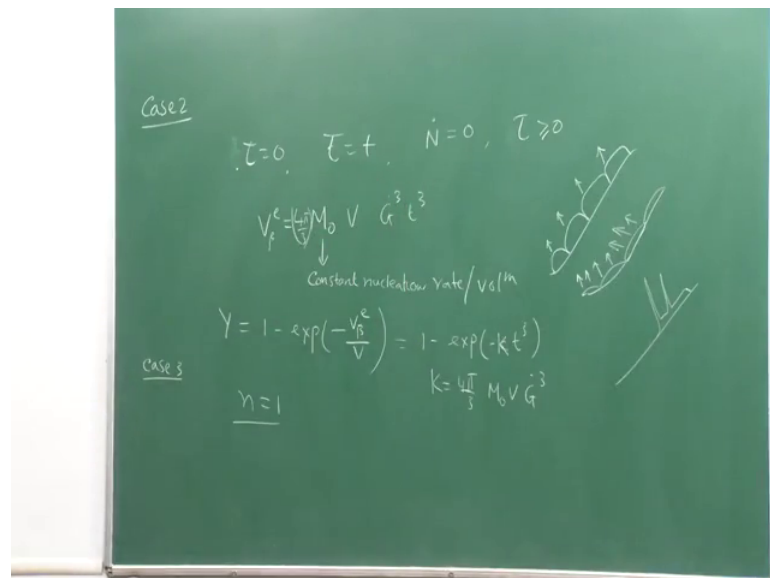 Case 2
τ=0, τ=t, Ṅ=0, τ≥0
V_β^e = (4π/3) M₀ V Ġ³ t³
↓
Constant nucleation rate/volm
Y = 1 - exp(-V_β^e/V) = 1 - exp(-k t³)
Case 3
K = 4π/3 M₀ V Ġ³
n=1